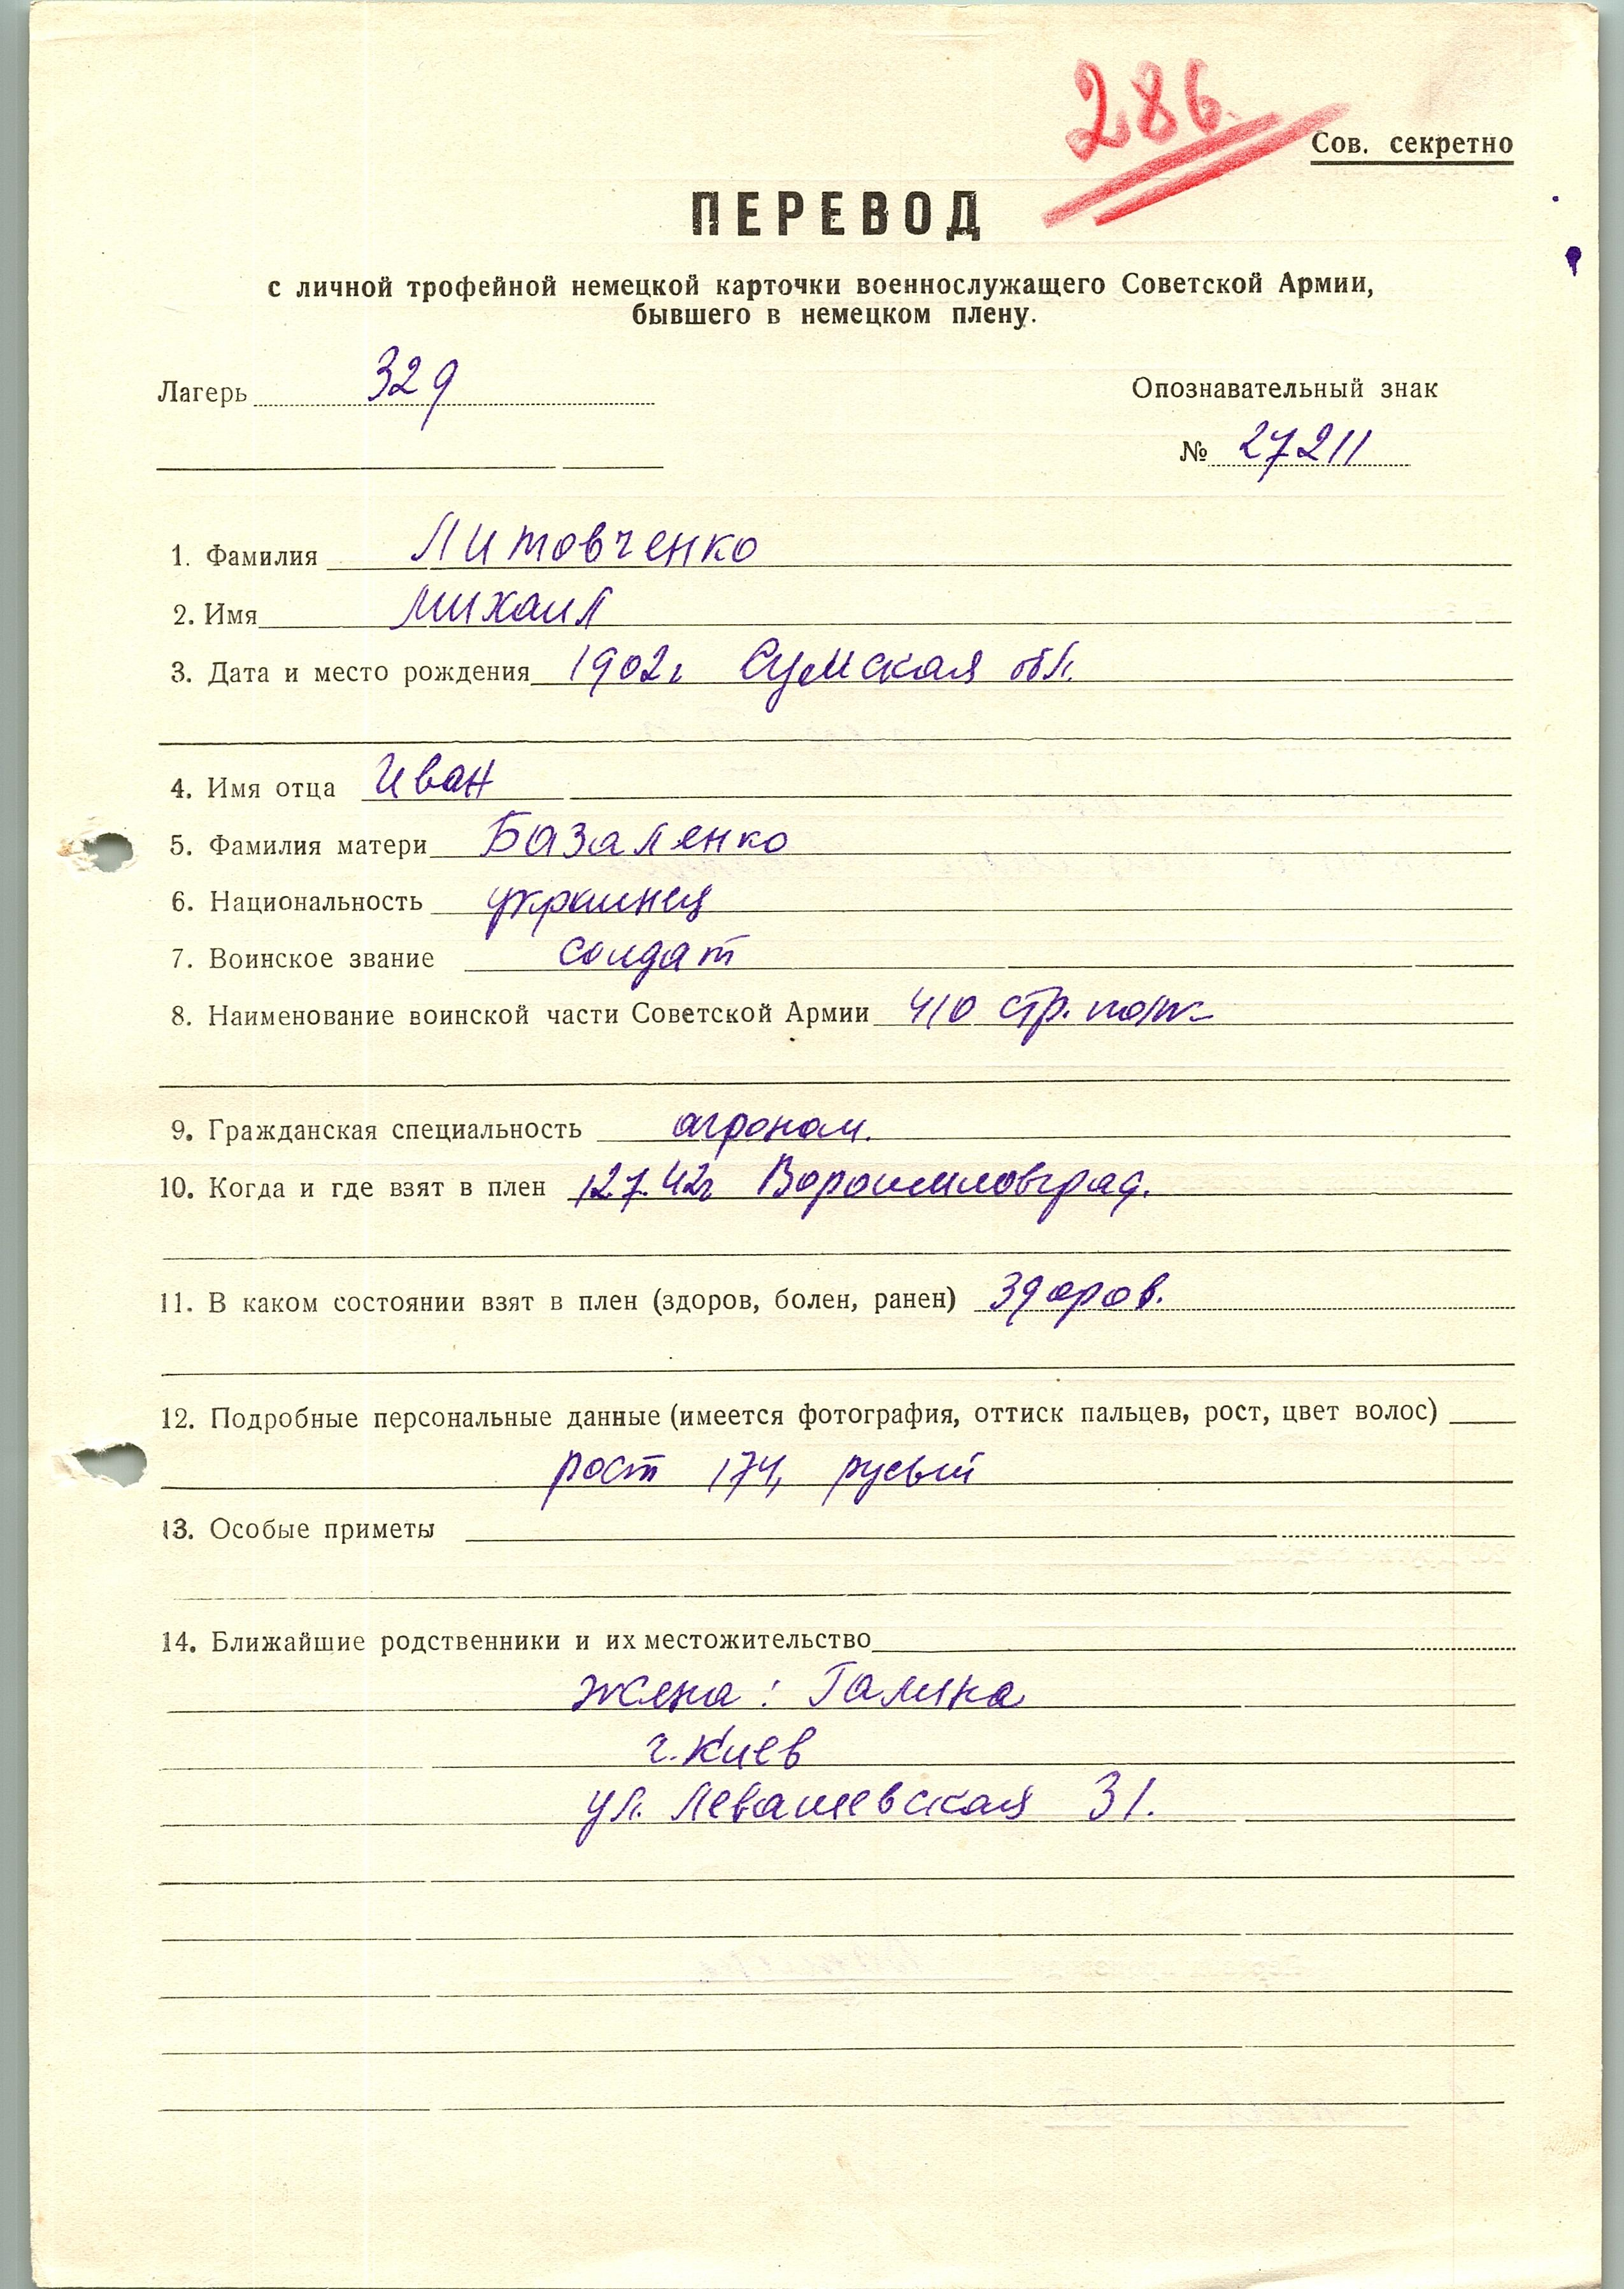 286.
Сов. секретно
ПЕРЕВОД
с личной трофейной немецкой карточки военнослужащего Советской Армии,
бывшего в немецком плену.
Лагерь 329
Опознавательный знак
№ 27211
1. Фамилия Литовченко
2. Имя Михаил
3. Дата и место рождения 1902г Сумская обл.
4. Имя отца Иван
5. Фамилия матери Базаленко
6. Национальность украинец
7. Воинское звание солдат
8. Наименование воинской части Советской Армии 410 стр. полк
9. Гражданская специальность агроном.
10. Когда и где взят в плен 12.7.42г Ворошиловград.
11. В каком состоянии взят в плен (здоров, болен, ранен) здоров.
12. Подробные персональные данные (имеется фотография, оттиск пальцев, рост, цвет волос)
рост 174, русый
13. Особые приметы
14. Ближайшие родственники и их местожительство
жена: Галина
г. Киев
ул. Левашевская 31.